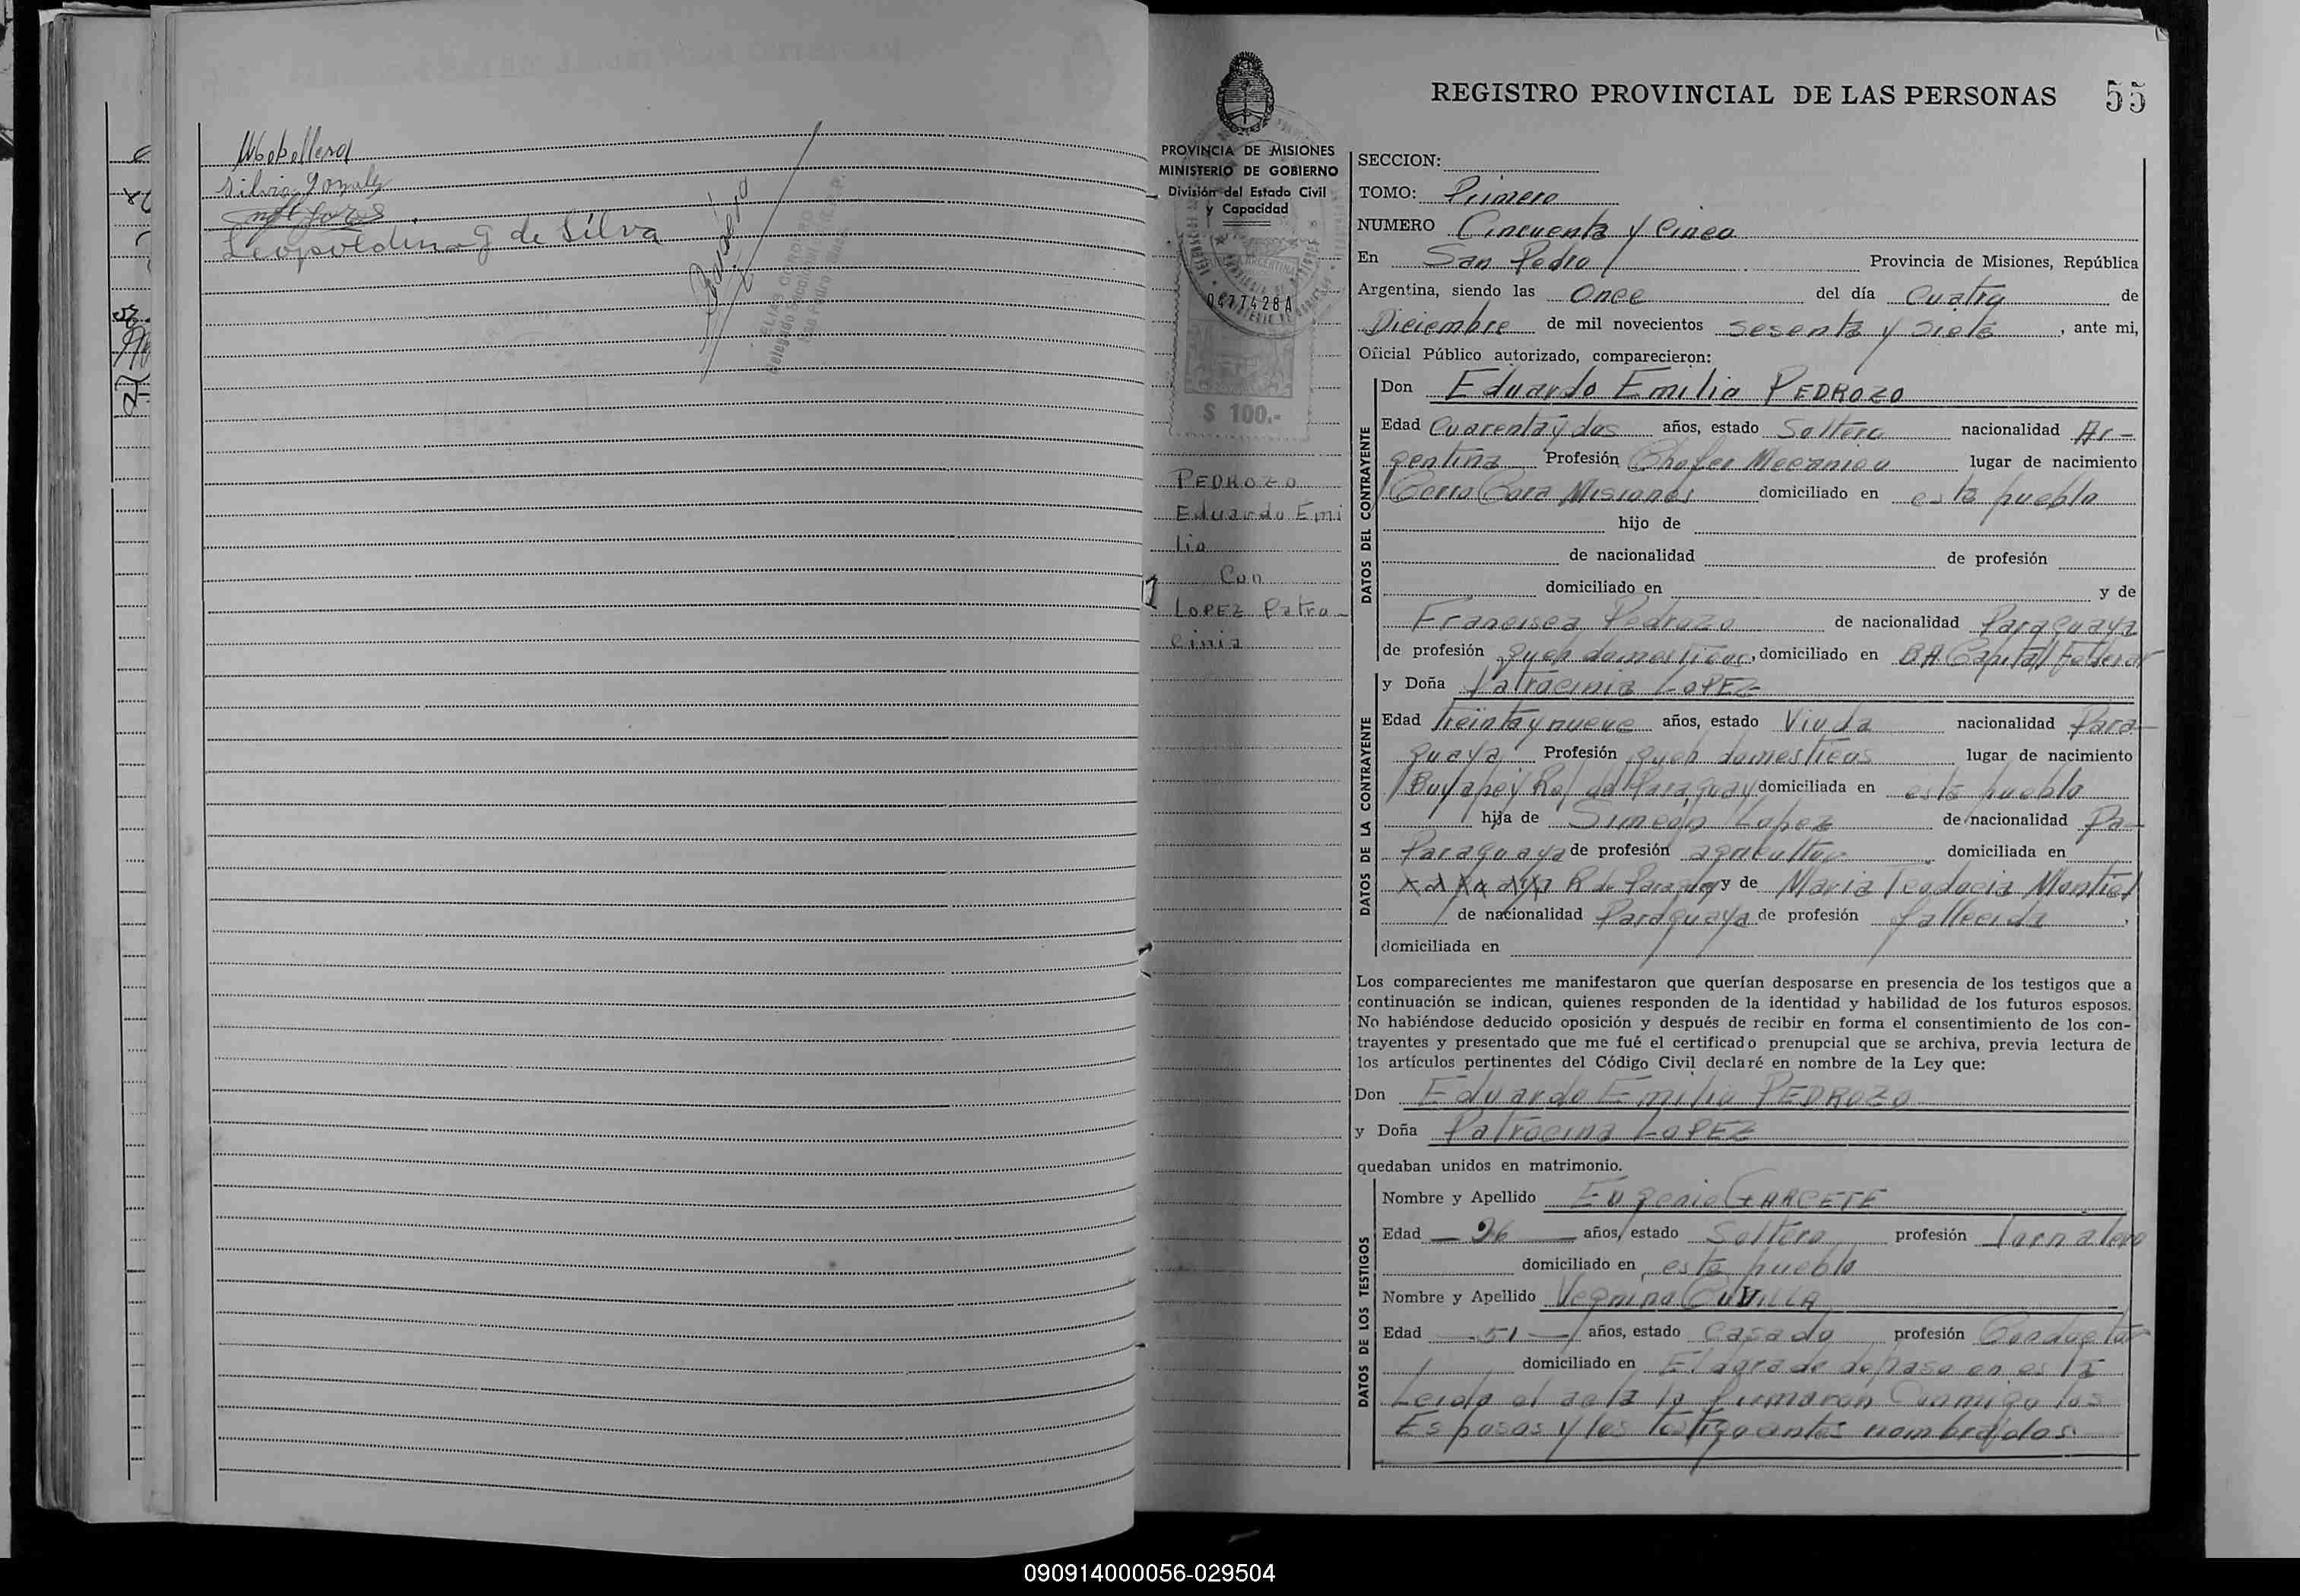 Silvia Gonzalez
Leopoldina G de Silva
REGISTRO PROVINCIAL DE LAS PERSONAS 55
PROVINCIA DE MISIONES
MINISTERIO DE GOBIERNO
División del Estado Civil
y Capacidad
0477428A
$ 100.-
PEDROZO
Eduardo Emi
lio
Con
LOPEZ Patro-
cinia
SECCION:
TOMO: Primero
NUMERO Cincuenta y Cinco
En San Pedro Provincia de Misiones, República
Argentina, siendo las Once del día Cuatro de
Diciembre de mil novecientos sesenta y siete, ante mi,
Oficial Público autorizado, comparecieron:
DATOS DEL CONTRAYENTE
Don Eduardo Emilio PEDROZO
Edad Cuarenta y dos años, estado Soltero nacionalidad Ar-
gentina Profesión Chofer Mecanico lugar de nacimiento
Cerro Cora Misiones domiciliado en este pueblo
hijo de
de nacionalidad de profesión
domiciliado en y de
Francisca Pedrozo de nacionalidad Paraguaya
de profesión queh domesticos, domiciliado en BA Capital Federal
DATOS DE LA CONTRAYENTE
y Doña Patrocinia LOPEZ
Edad Treinta y nueve años, estado Viuda nacionalidad Para-
guaya Profesión queh domesticos lugar de nacimiento
Buyapey Rep de Paraguay domiciliada en este pueblo
hija de Simeon Lopez de nacionalidad Pa-
Paraguaya de profesión agricultor domiciliada en
R de Paraguay y de Maria Teodocia Montiel
de nacionalidad Paraguaya de profesión fallecida,
domiciliada en
Los comparecientes me manifestaron que querían desposarse en presencia de los testigos que a
continuación se indican, quienes responden de la identidad y habilidad de los futuros esposos.
No habiéndose deducido oposición y después de recibir en forma el consentimiento de los con-
trayentes y presentado que me fué el certificado prenupcial que se archiva, previa lectura de
los artículos pertinentes del Código Civil declaré en nombre de la Ley que:
Don Eduardo Emilio PEDROZO
y Doña Patrocina LOPEZ
quedaban unidos en matrimonio.
DATOS DE LOS TESTIGOS
Nombre y Apellido Eugenio GARCETE
Edad — 26 — años, estado Soltero profesión Jornalero
domiciliado en este pueblo
Nombre y Apellido CUVILLA
Edad — 51 — años, estado Casado profesión Conductor
domiciliado en
Leida el acta la firmaron Conmigo los
Esposos y los testigo antes nombrados.
090914000056-029504